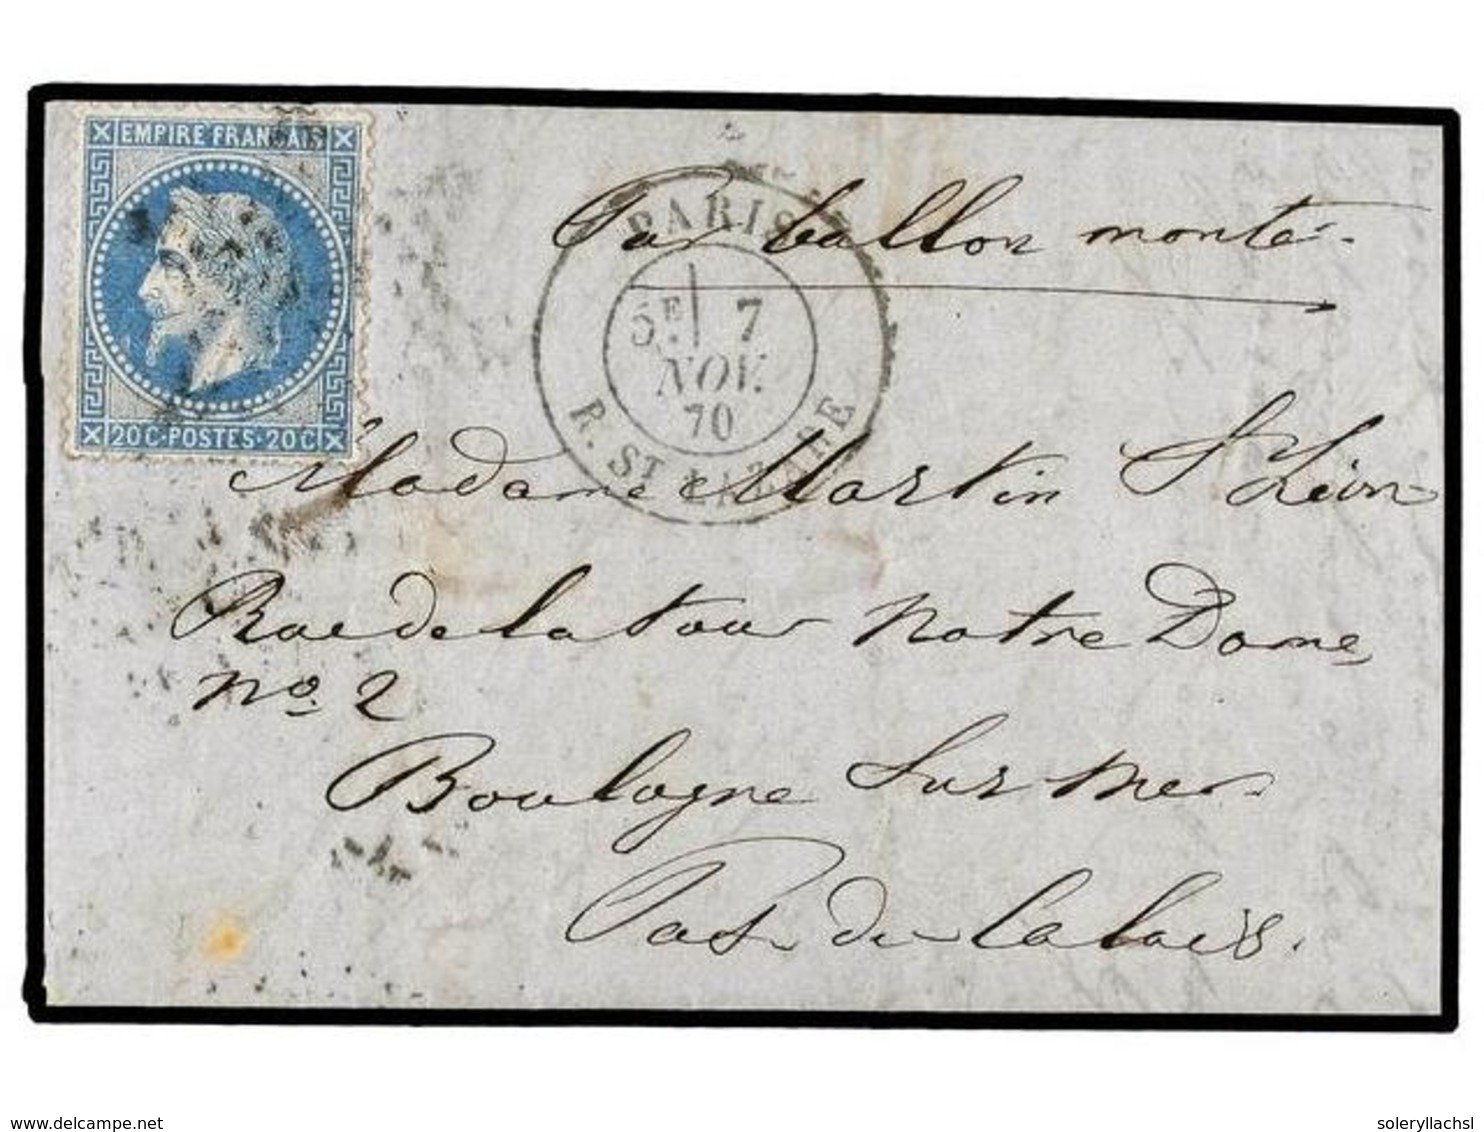 EMPIRE FRANÇAIS
20C·POSTES·20C
PARIS
5E 7
NOV.
70
R. ST LAZARE
Par ballon monté.
Madame Martin St Léon
Rue de la tour Notre Dame,
No. 2
Boulogne Sur Mer
Pas de Calais.
www.delcampe.net
soleryllachsl